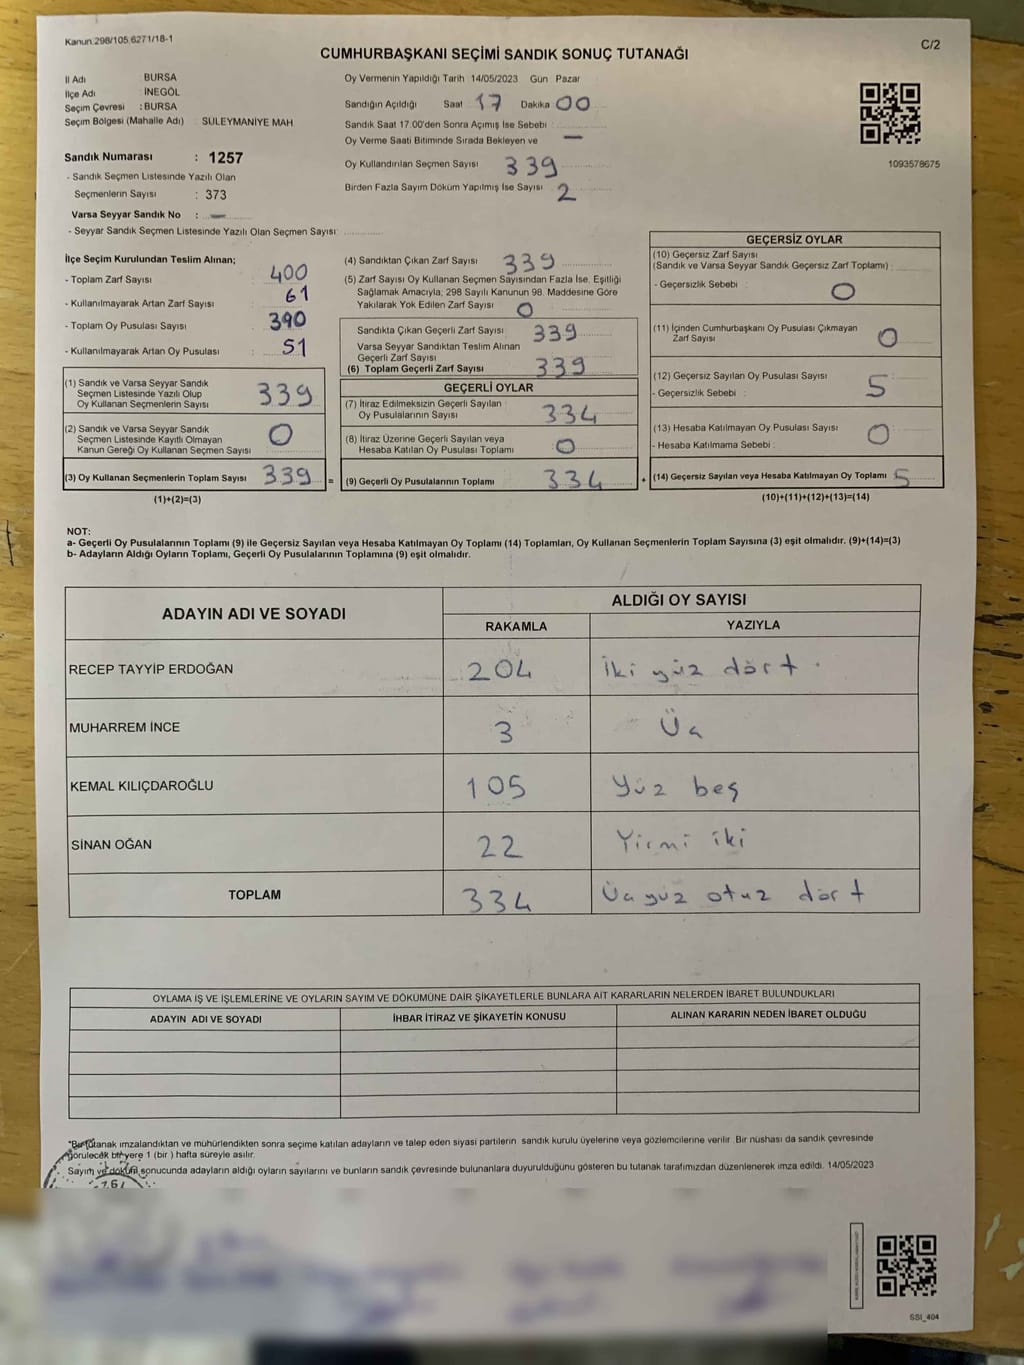 Kanun:298/105,6271/18-1
C/2
CUMHURBAŞKANI SEÇİMİ SANDIK SONUÇ TUTANAĞI
İl Adı BURSA
İlçe Adı İNEGÖL
Seçim Çevresi : BURSA
Seçim Bölgesi (Mahalle Adı) : SÜLEYMANİYE MAH
Sandık Numarası : 1257
- Sandık Seçmen Listesinde Yazılı Olan
Seçmenlerin Sayısı : 373
Varsa Seyyar Sandık No : —
- Seyyar Sandık Seçmen Listesinde Yazılı Olan Seçmen Sayısı:
Oy Vermenin Yapıldığı Tarih 14/05/2023 Gün Pazar
Sandığın Açıldığı Saat 17 Dakika 00
Sandık Saat 17:00'den Sonra Açımış İse Sebebi :
Oy Verme Saati Bitiminde Sırada Bekleyen ve —
Oy Kullandırılan Seçmen Sayısı 339
Birden Fazla Sayım Döküm Yapılmış İse Sayısı 2
1093578675
İlçe Seçim Kurulundan Teslim Alınan;
- Toplam Zarf Sayısı 400
- Kullanılmayarak Artan Zarf Sayısı 61
- Toplam Oy Pusulası Sayısı 390
- Kullanılmayarak Artan Oy Pusulası : 51
(1) Sandık ve Varsa Seyyar Sandık
Seçmen Listesinde Yazılı Olup
Oy Kullanan Seçmenlerin Sayısı 339
(2) Sandık ve Varsa Seyyar Sandık
Seçmen Listesinde Kayıtlı Olmayan
Kanun Gereği Oy Kullanan Seçmen Sayısı 0
(3) Oy Kullanan Seçmenlerin Toplam Sayısı 339
(1)+(2)=(3)
=
(4) Sandıktan Çıkan Zarf Sayısı 339
(5) Zarf Sayısı Oy Kullanan Seçmen Sayısından Fazla İse, Eşitliği
Sağlamak Amacıyla; 298 Sayılı Kanunun 98. Maddesine Göre
Yakılarak Yok Edilen Zarf Sayısı 0
Sandıkta Çıkan Geçerli Zarf Sayısı 339
Varsa Seyyar Sandıktan Teslim Alınan
Geçerli Zarf Sayısı
(6) Toplam Geçerli Zarf Sayısı 339
GEÇERLİ OYLAR
(7) İtiraz Edilmeksizin Geçerli Sayılan
Oy Pusulalarının Sayısı 334
(8) İtiraz Üzerine Geçerli Sayılan veya
Hesaba Katılan Oy Pusulası Toplamı 0
(9) Geçerli Oy Pusulalarının Toplamı 334
+
GEÇERSİZ OYLAR
(10) Geçersiz Zarf Sayısı
(Sandık ve Varsa Seyyar Sandık Geçersiz Zarf Toplamı) :
- Geçersizlik Sebebi : 0
(11) İçinden Cumhurbaşkanı Oy Pusulası Çıkmayan
Zarf Sayısı 0
(12) Geçersiz Sayılan Oy Pusulası Sayısı 5
- Geçersizlik Sebebi :
(13) Hesaba Katılmayan Oy Pusulası Sayısı 0
- Hesaba Katılmama Sebebi :
(14) Geçersiz Sayılan veya Hesaba Katılmayan Oy Toplamı 5
(10)+(11)+(12)+(13)=(14)
NOT:
a- Geçerli Oy Pusulalarının Toplamı (9) ile Geçersiz Sayılan veya Hesaba Katılmayan Oy Toplamı (14) Toplamları, Oy Kullanan Seçmenlerin Toplam Sayısına (3) eşit olmalıdır. (9)+(14)=(3)
b- Adayların Aldığı Oyların Toplamı, Geçerli Oy Pusulalarının Toplamına (9) eşit olmalıdır.
ADAYIN ADI VE SOYADI ALDIĞI OY SAYISI
RAKAMLA YAZIYLA
RECEP TAYYİP ERDOĞAN 204 İki yüz dört .
MUHARREM İNCE 3 Üç
KEMAL KILIÇDAROĞLU 105 Yüz beş
SİNAN OĞAN 22 Yirmi iki
TOPLAM 334 Üçyüz otuz dört
OYLAMA İŞ VE İŞLEMLERİNE VE OYLARIN SAYIM VE DÖKÜMÜNE DAİR ŞİKAYETLERLE BUNLARA AİT KARARLARIN NELERDEN İBARET BULUNDUKLARI
ADAYIN ADI VE SOYADI İHBAR İTİRAZ VE ŞİKAYETİN KONUSU ALINAN KARARIN NEDEN İBARET OLDUĞU
*Bu tutanak imzalandıktan ve mühürlendikten sonra seçime katılan adayların ve talep eden siyasi partilerin sandık kurulu üyelerine veya gözlemcilerine verilir. Bir nüshası da sandık çevresinde
görülecek bir yere 1 (bir ) hafta süreyle asılır.
Sayım ve döküm sonucunda adayların aldığı oyların sayılarını ve bunların sandık çevresinde bulunanlara duyurulduğunu gösteren bu tutanak tarafımızdan düzenlenerek imza edildi. 14/05/2023
SSI_404